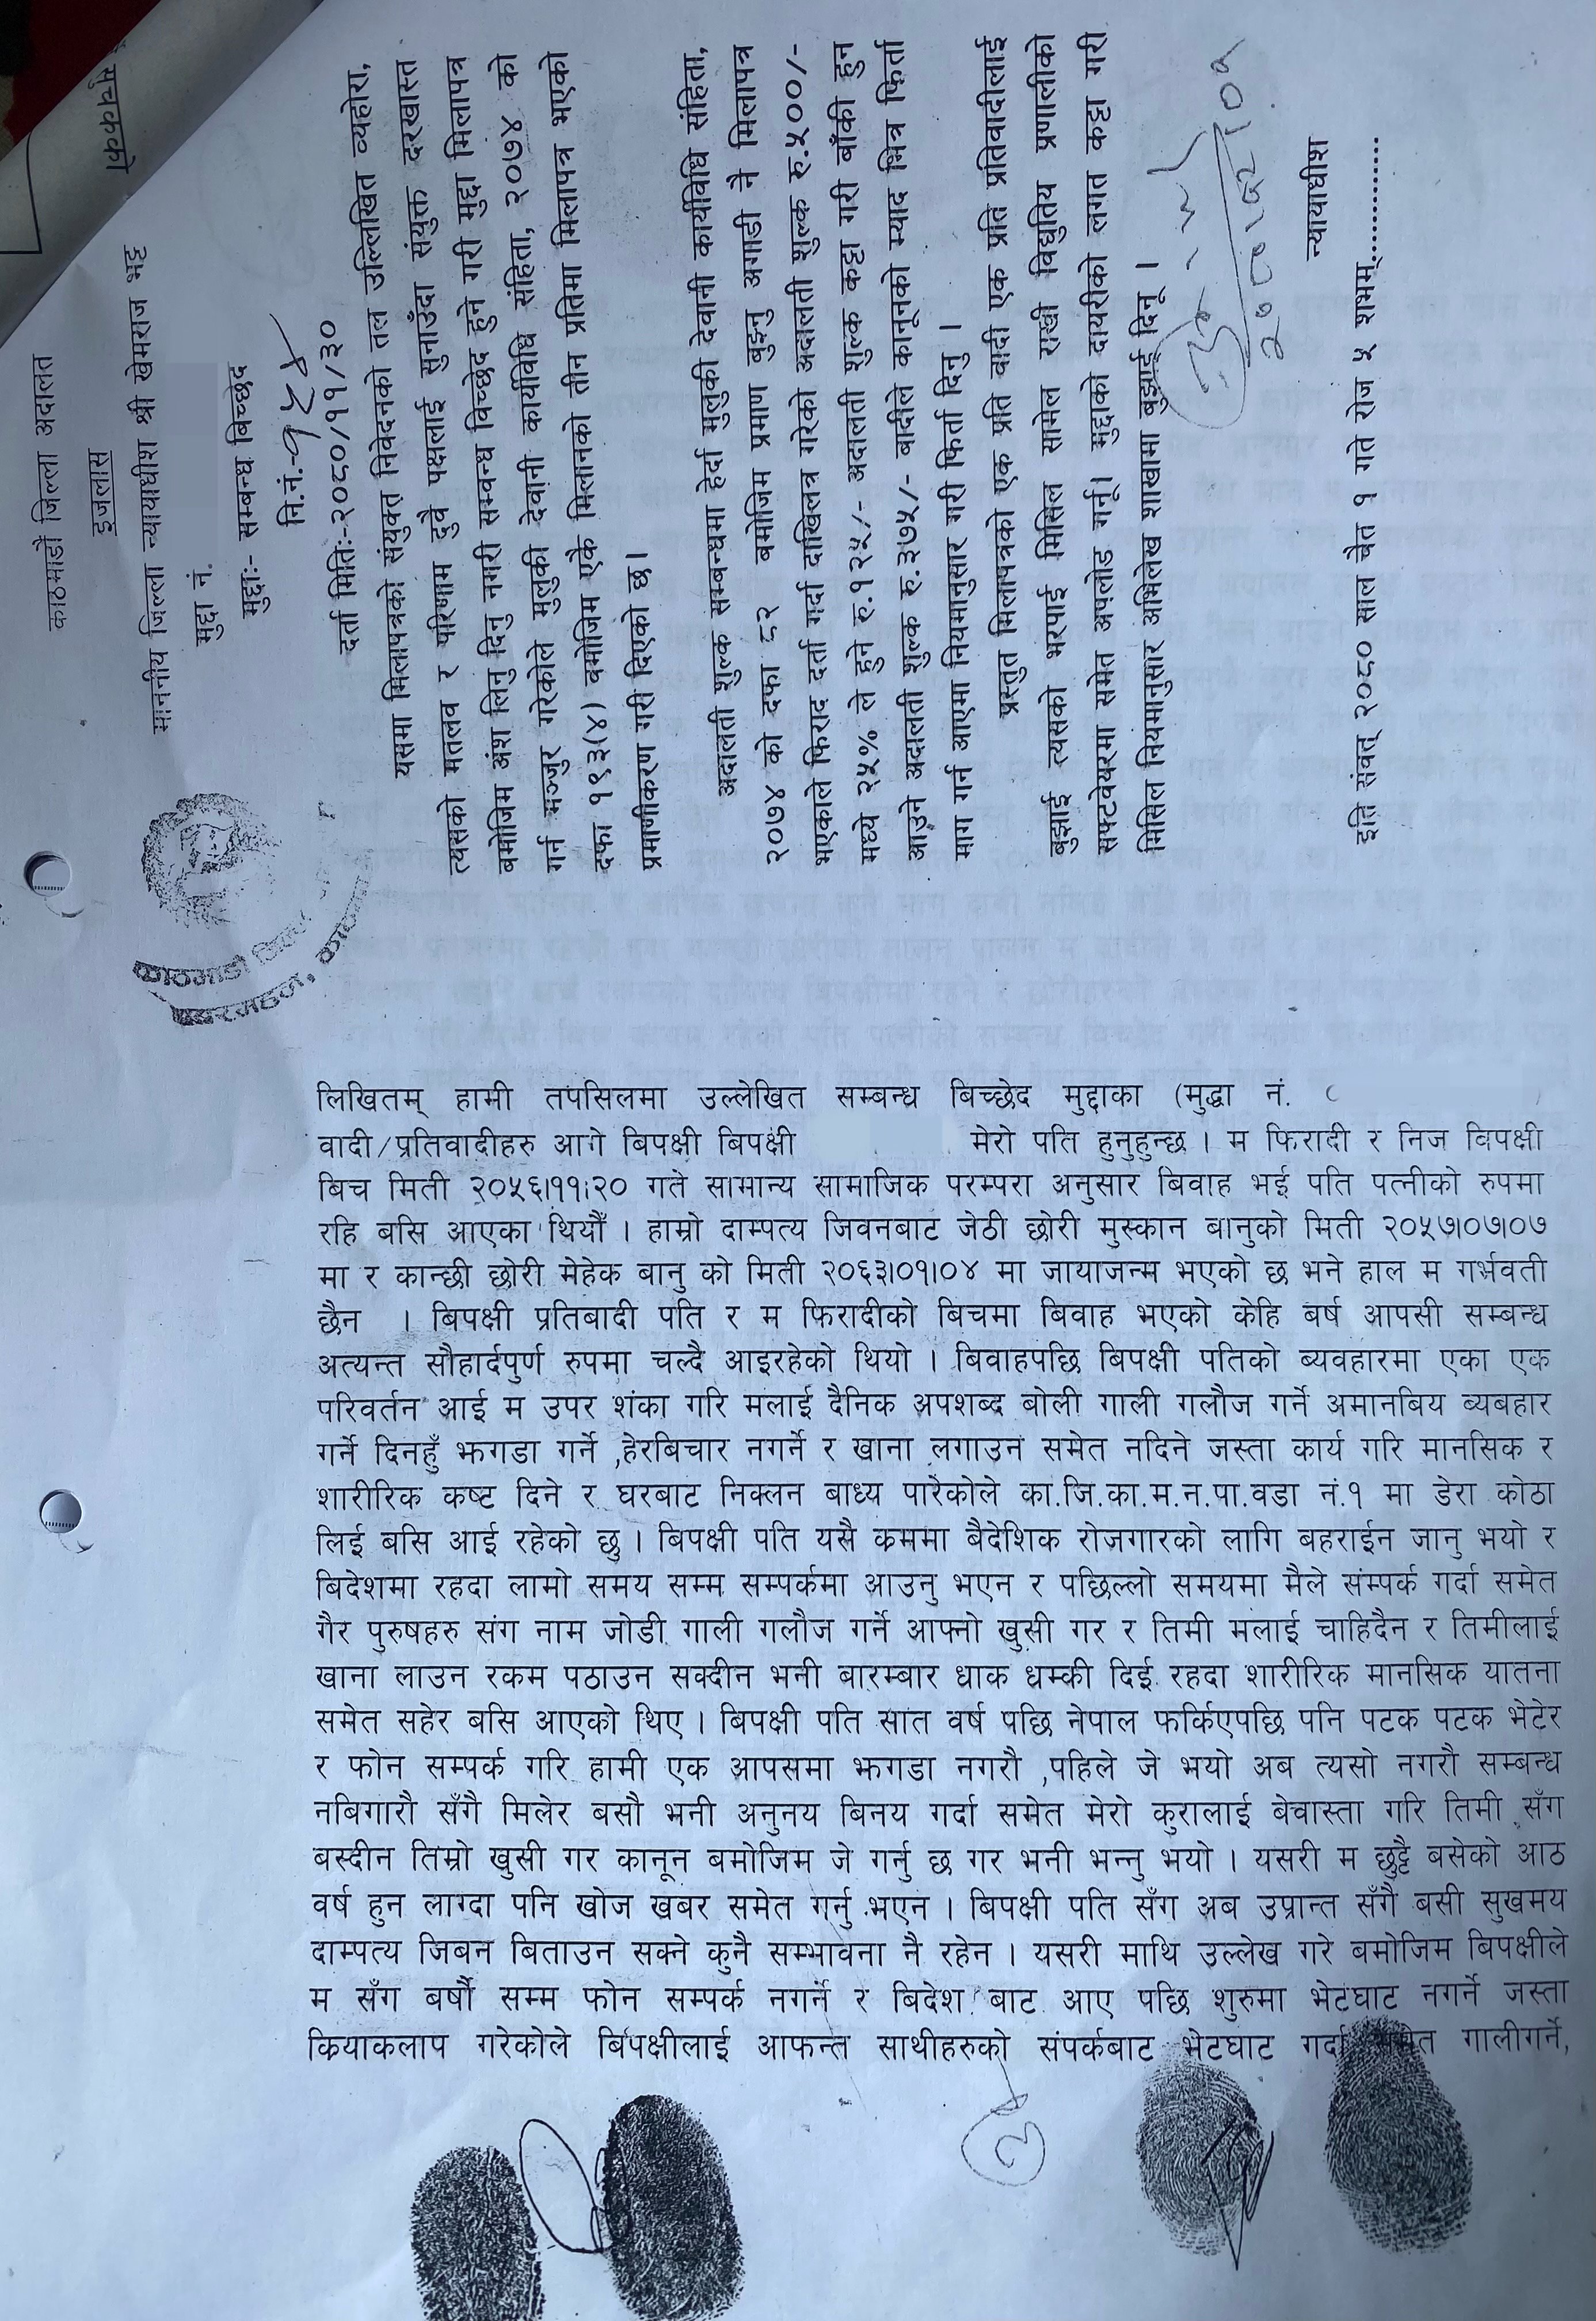 सूचकको
काठमाडौं जिल्ला अदालत
इजलास
माननीय जिल्ला न्यायाधीश श्री खेमराज भट्ट
मुद्दा नं.
मुद्दाः- सम्बन्ध बिच्छेद
नि.नं.-१९८४
दर्ता मितिः-२०८०/११/३०
यसमा मिलापत्रको संयुक्त निवेदनको तल उल्लिखित व्यहोरा,
त्यसको मतलव र परिणाम दुवै पक्षलाई सुनाउँदा संयुक्त दरखास्त
बमोजिम अंश लिनु दिनु नगरी सम्वन्ध विच्छेद हुने गरी मुद्दा मिलापत्र
गर्न मञ्जुर गरेकोले मुलुकी देवानी कार्यविधि संहिता, २०७४ को
दफा १९३(४) बमोजिम एकै मिलानको तीन प्रतिमा मिलापत्र भएको
प्रमाणीकरण गरी दिएको छु।
अदालती शुल्क सम्बन्धमा हेर्दा मुलुकी देवानी कार्यविधि संहिता,
२०७४ को दफा ८२ बमोजिम प्रमाण बुझ्नु अगाडी नै मिलापत्र
भएकाले फिराद दर्ता गर्दा दाखिलत्र गरेको अदालती शुल्क रु.५००/-
मध्ये २५% ले हुने रु.१२५/- अदालती शुल्क कट्टा गरी बाँकी हुन
आउने अदालती शुल्क रु.३७५/- बादीले कानूनको म्याद भित्र फिर्ता
माग गर्न आएमा नियमानुसार गरी फिर्ता दिनु ।
प्रस्तुत मिलापत्रको एक प्रति वादी एक प्रति प्रतिवादीलाई
बुझाई त्यसको भरपाई मिसिल सामेल राखी विद्युतिय प्रणालीको
सफ्टवेयरमा समेत अपलोड गर्नू। मुद्दाको दायरीको लगत कट्टा गरी
मिसिल नियमानुसार अभिलेख शाखामा बुझाई दिनू ।
२०८०।१२।०१
न्यायाधीश
इति संवत् २०८० साल चैत १ गते रोज ५ शुभम्.............
काठमाडौं जिल्ला
बबरमहल,
लिखितम् हामी तपसिलमा उल्लेखित सम्बन्ध बिच्छेद मुद्दाका (मुद्धा नं.
वादी/प्रतिवादीहरु आगे बिपक्षी बिपक्षी मेरो पति हुनुहुन्छ । म फिरादी र निज विपक्षी
बिच मिती २०५६।११।२० गते सामान्य सामाजिक परम्परा अनुसार बिवाह भई पति पत्नीको रुपमा
रहि बसि आएका थियौँ । हाम्रो दाम्पत्य जिवनबाट जेठी छोरी मुस्कान बानुको मिती २०५७।०७।०७
मा र कान्छी छोरी मेहेक बानु को मिती २०६३।०१।०४ मा जायाजन्म भएको छ भने हाल म गर्भवती
छैन । बिपक्षी प्रतिबादी पति र म फिरादीको बिचमा बिवाह भएको केहि बर्ष आपसी सम्बन्ध
अत्यन्त सौहार्दपुर्ण रुपमा चल्दै आइरहेको थियो । बिवाहपछि बिपक्षी पतिको ब्यवहारमा एका एक
परिवर्तन आई म उपर शंका गरि मलाई दैनिक अपशब्द बोली गाली गलौज गर्ने अमानबिय ब्यबहार
गर्ने दिनहुँ झगडा गर्ने ,हेरबिचार नगर्ने र खाना लगाउन समेत नदिने जस्ता कार्य गरि मानसिक र
शारीरिक कष्ट दिने र घरबाट निक्लन बाध्य पारेकोले का.जि.का.म.न.पा.वडा नं.१ मा डेरा कोठा
लिई बसि आई रहेको छु । बिपक्षी पति यसै क्रममा बैदेशिक रोजगारको लागि बहराईन जानु भयो र
बिदेशमा रहदा लामो समय सम्म सम्पर्कमा आउनु भएन र पछिल्लो समयमा मैले संम्पर्क गर्दा समेत
गैर पुरुषहरु संग नाम जोडी गाली गलौज गर्ने आफ्नो खुसी गर र तिमी मलाई चाहिदैन र तिमीलाई
खाना लाउन रकम पठाउन सक्दीन भनी बारम्बार धाक धम्की दिई रहदा शारीरिक मानसिक यातना
समेत सहेर बसि आएको थिए । बिपक्षी पति सात वर्ष पछि नेपाल फर्किएपछि पनि पटक पटक भेटेर
र फोन सम्पर्क गरि हामी एक आपसमा झगडा नगरौ ,पहिले जे भयो अब त्यसो नगरौ सम्बन्ध
नबिगारौ सँगै मिलेर बसौ भनी अनुनय बिनय गर्दा समेत मेरो कुरालाई बेवास्ता गरि तिमी सँग
बस्दीन तिम्रो खुसी गर कानून बमोजिम जे गर्नु छ गर भनी भन्नु भयो । यसरी म छुट्टै बसेको आठ
वर्ष हुन लाग्दा पनि खोज खबर समेत गर्नु भएन । बिपक्षी पति सँग अब उप्रान्त सँगै बसी सुखमय
दाम्पत्य जिबन बिताउन सक्ने कुनै सम्भावना नै रहेन । यसरी माथि उल्लेख गरे बमोजिम बिपक्षीले
म सँग बर्षौ सम्म फोन सम्पर्क नगर्ने र बिदेश बाट आए पछि शुरुमा भेटघाट नगर्ने जस्ता
क्रियाकलाप गरेकोले बिपक्षीलाई आफन्त साथीहरुको संपर्कबाट भेटघाट गर्दा समेत गालीगर्ने,